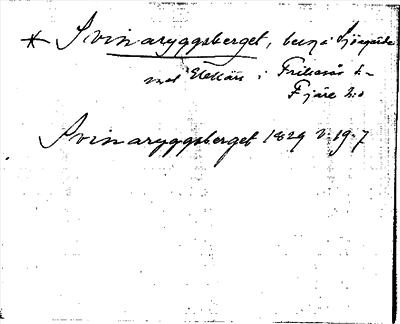 * Svinaryggsberget, berg i Sjögärde
mot Stekärr i Frillesås s-
Fjäre h:d
Svinaryggsberget 1829 v. 19.7